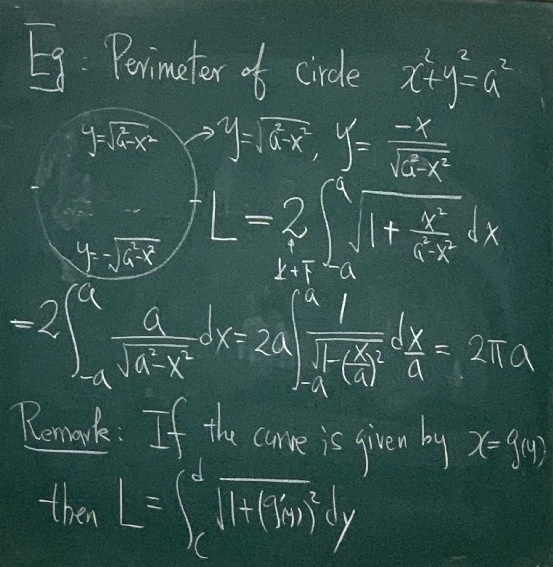 Eg: Perimeter of circle x²+y²=a²
y=√(a²-x²) → y=√(a²-x²), y'= -x/√(a²-x²)
L = 2 ∫_{-a}^{a} √(1+ x²/(a²-x²)) dx
y=-√(a²-x²)
=2∫_{-a}^{a} a/√(a²-x²) dx = 2a ∫_{-a}^{a} 1/√(1-(x/a)²) dx/a = 2πa
Remark: If the curve is given by x=g(y)
then L = ∫_c^d √(1+(g'(y))²) dy